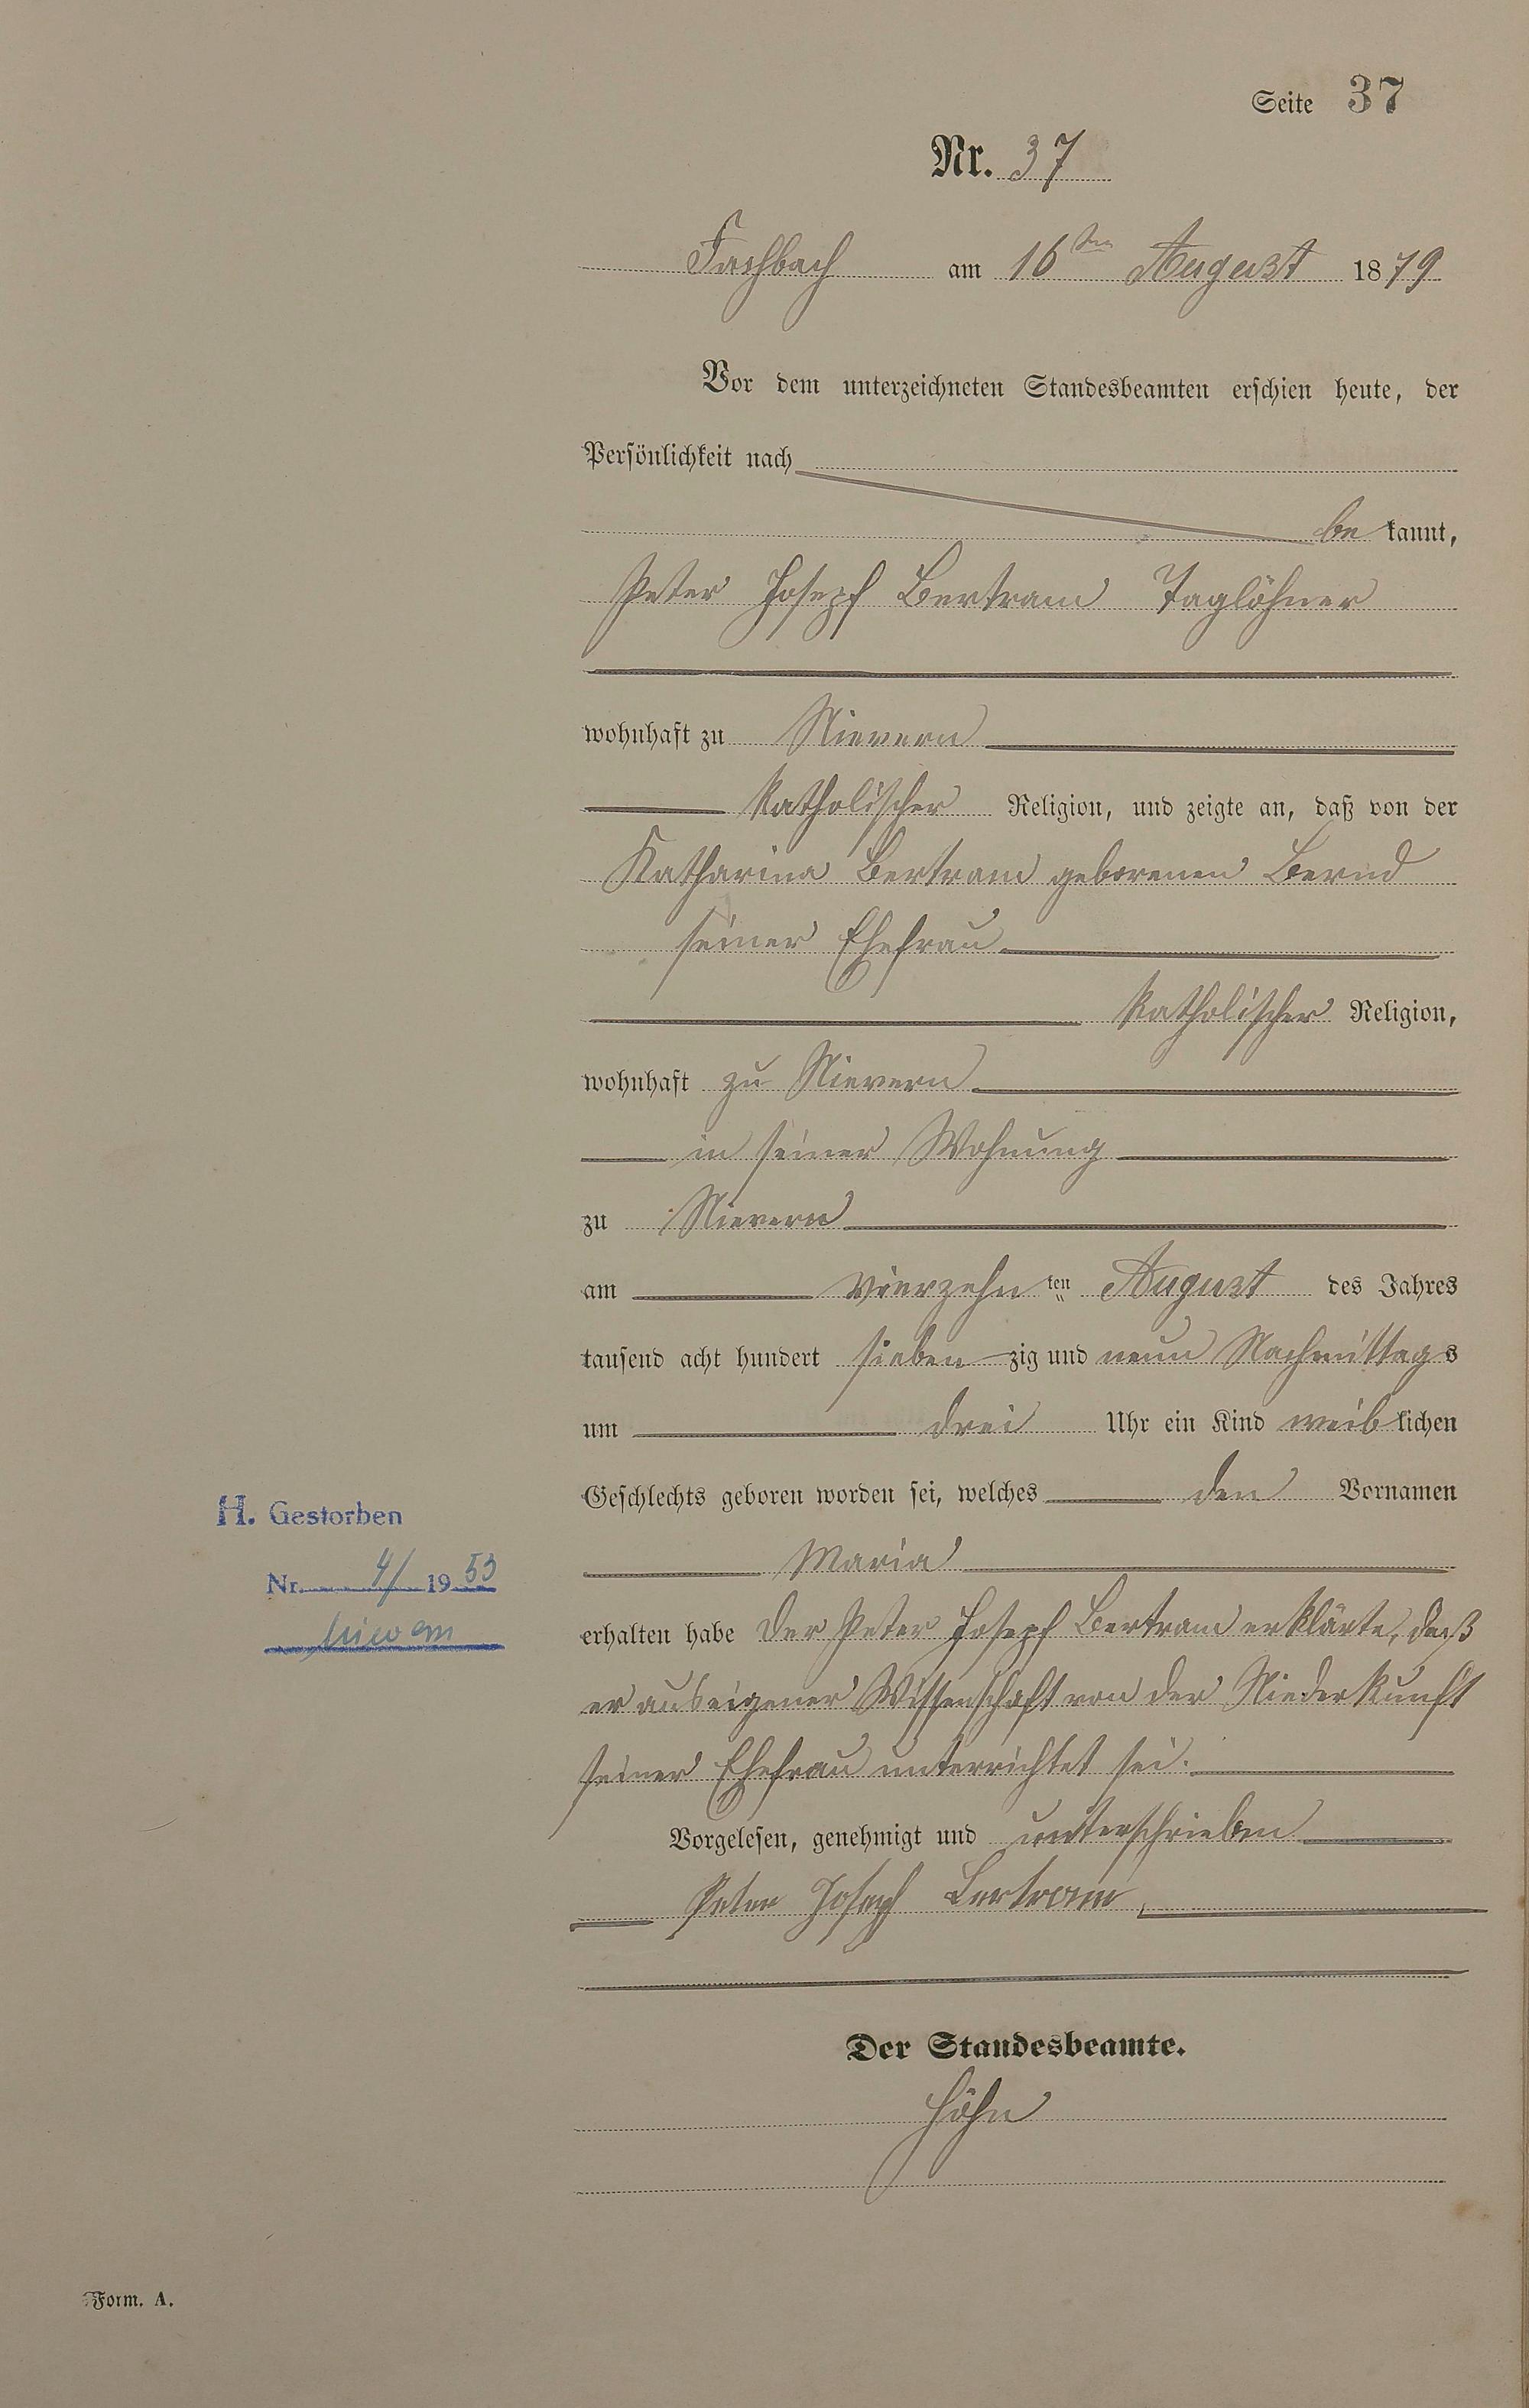 Seite 37
Nr. 37
Fachbach am 16ten August 1879
Vor dem unterzeichneten Standesbeamten erschien heute, der
Persönlichkeit nach
be kannt,
Peter Josepf Bertram Taglöhner
wohnhaft zu Nievern
katholischer Religion, und zeigte an, daß von der
Katharina Bertram geborenen Bernd
seiner Ehefrau
katholischer Religion,
wohnhaft zu Nievern
in seiner Wohnung
zu Nievern
am vierzehn ten August des Jahres
tausend acht hundert sieben zig und neun Nachmittags
um drei Uhr ein Kind weib lichen
Geschlechts geboren worden sei, welches den Vornamen
Maria
H. Gestorben
Nr. 4/ 1953
erhalten habe Der Peter Josepf Bertram erklärte, daß
er aus eigener Wissenschaft von der Niederkunft
seiner Ehefrau unterrichtet sei.
Vorgelesen, genehmigt und unterschrieben
Peter Joseph Bertram
Der Standesbeamte.
Höhn
Form. A.